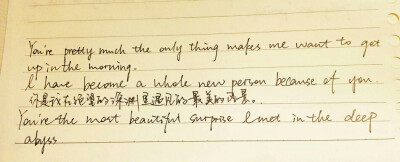 You're pretty much the only thing makes me want to get
up in the morning.
I have become a whole new person because of you.
你是我在绝望的深渊里遇见的最美的风景。
You're the most beautiful surprise I met in the deep
abyss